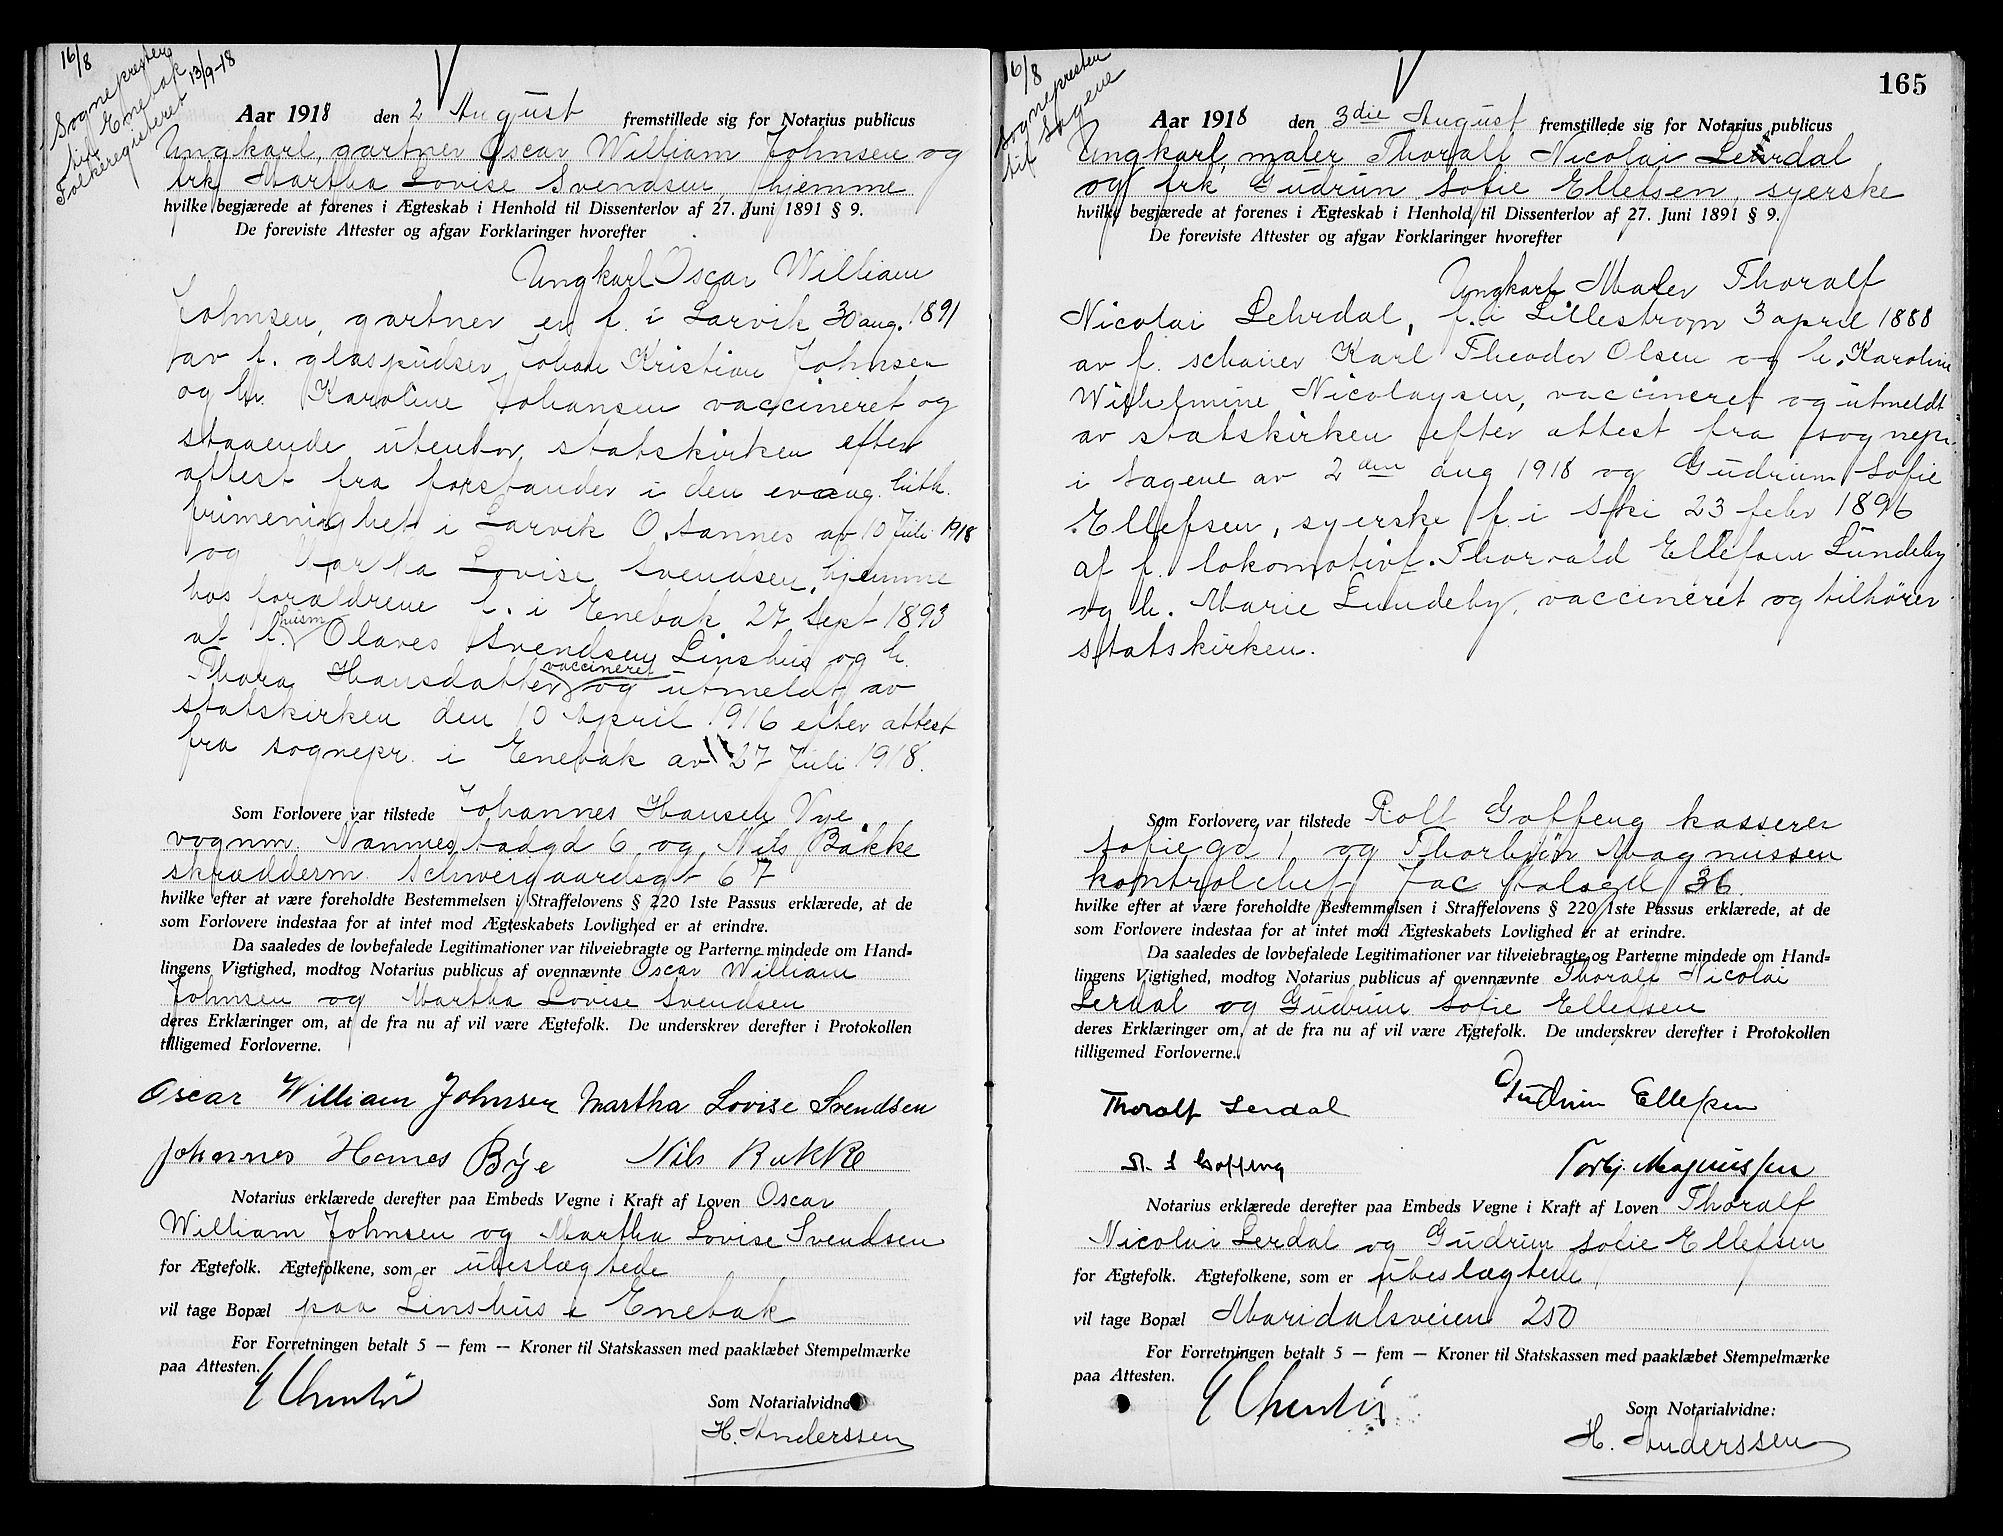 16/8
Sognepresten
til Enebak
Folkeregisteret 13/9-18
Aar 1918 den 2 August fremstillede sig for Notarius publicus
Ungkarl, gartner Oscar William Johnsen og
frk Martha Lovise Svendsen, hjemme
hvilke begjærede at forenes i Ægteskab i Henhold til Dissenterlov af 27. Juni 1891 § 9.
De foreviste Attester og afgav Forklaringer hvorefter
Ungkarl Oscar William
Johnsen, gartner er f. i Larvik 30 aug. 1891
av f. glaspudser Johan Kristian Johnsen
og h. Karoline Johansen vaccineret og
staaende utenfor statskirken efter
attest fra forstander i den evang. luth.
frimenighet i Larvik O. Sannes av 10 Juli 1918
og Martha Lovise Svendsen, hjemme
hos forældrene f. i Enebak 27 Sept 1893
af f. husm Olaves Svendsen Linshus og h.
Thora Hansdatter vaccineret og utmeldt av
statskirken den 10 April 1916 efter attest
fra sognepr. i Enebak av 27 Juli 1918.
Som Forlovere var tilstede Johannes Hansen Bye
vognm. Nannestadgd 6 og Nils Bakke
skrædderm. Schweigaardsgt 67
hvilke efter at være foreholdte Bestemmelsen i Straffelovens § 220 1ste Passus erklærede, at de
som Forlovere indestaa for at intet mod Ægteskabets Lovlighed er at erindre.
Da saaledes de lovbefalede Legitimationer var tilveiebragte og Parterne mindede om Hand-
lingens Vigtighed, modtog Notarius publicus af ovennævnte Oscar William
Johnsen og Martha Lovise Svendsen
deres Erklæringer om, at de fra nu af vil være Ægtefolk. De underskrev derefter i Protokollen
tilligemed Forloverne.
Oscar William Johnsen Martha Lovise Svendsen
Johannes Hansen Bye Nils Bakke
Notarius erklærede derefter paa Embeds Vegne i Kraft af Loven Oscar
William Johnsen og Martha Lovise Svendsen
for Ægtefolk. Ægtefolkene, som er ubeslægtede
vil tage Bopæl paa Linshus i Enebak
For Forretningen betalt 5 — fem — Kroner til Statskassen med paaklæbet Stempelmærke
paa Attesten.
Som Notarialvidne
H. Anderssen
165
16/8
Sognepresten
til Sagene
Aar 1918 den 3die August fremstillede sig for Notarius publicus
Ungkarl, maler Thoralf Nicolai Lerdal
og frk Gudrun Sofie Ellefsen, syerske
hvilke begjærede at forenes i Ægteskab i Henhold til Dissenterlov af 27. Juni 1891 § 9.
De foreviste Attester og afgav Forklaringer hvorefter
Ungkarl Maler Thoralf
Nicolai Lehrdal, f. i Lillestrøm 3 april 1888
av f. schauer Karl Theodor Olsen og h. Karoline
Wilhelmine Nicolaysen, vaccineret og utmeldt
av statskirken efter attest fra sognepr.
i Sagene av 2den aug 1918 og Gudrun Sofie
Ellefsen, syerske f. i Ski 23 febr 1896
af f. lokomotivf. Thorvald Ellefsen Lundeby
og h. Marie Lundeby, vaccineret og tilhører
statskirken.
Som Forlovere var tilstede Rolf Goffeng kasserer
Sofiegd 1 og Thorbjørn Magnussen
kontrolchef Jac Aalsgd 36.
hvilke efter at være foreholdte Bestemmelsen i Straffelovens § 220 1ste Passus erklærede, at de
som Forlovere indestaa for at intet mod Ægteskabets Lovlighed er at erindre.
Da saaledes de lovbefalede Legitimationer var tilveiebragte og Parterne mindede om Hand-
lingens Vigtighed, modtog Notarius publicus af ovennævnte Thoralf Nicolai
Lerdal og Gudrun Sofie Ellefsen
deres Erklæringer om, at de fra nu af vil være Ægtefolk. De underskrev derefter i Protokollen
tilligemed Forloverne.
Thoralf Lerdal Gudrun Ellefsen
R. S Goffeng Torbj. Magnussen
Notarius erklærede derefter paa Embeds Vegne i Kraft af Loven Thoralf
Nicolai Lerdal og Gudrun Sofie Ellefsen
for Ægtefolk. Ægtefolkene, som er ubeslægtede
vil tage Bopæl Maridalsveien 250
For Forretningen betalt 5 — fem — Kroner til Statskassen med paaklæbet Stempelmærke
paa Attesten.
Som Notarialvidne:
H. Anderssen